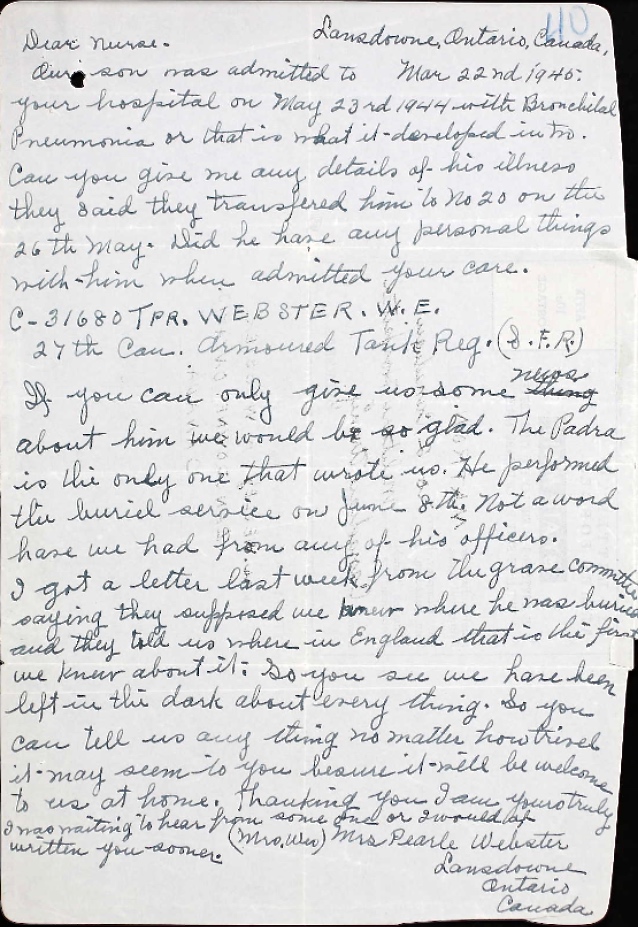 110
Lansdowne, Ontario, Canada,
Dear Nurse. Mar 22nd 1945.
Our son was admitted to
your hospital on May 23rd 1944 with Bronchilal
Pneumonia or that is what it developed into.
Can you give me any details of his illness
they said they transfered him to No 20 on the
26th May. Did he have any personal things
with him when admitted your care.
C-31680 TPR. WEBSTER. W.E.
27th Can. Armoured Tank Reg. (S.F.R.)
If you can only give us some thing news
about him we would be so glad. The Padra
is the only one that wrote us. He performed
the buriel service on June 8th. Not a word
have we had from any of his officers.
I got a letter last week from the grave committe
saying they supposed we knew where he was buried
and they told us where in England that is the first
we knew about it. So you see we have been
left in the dark about every thing. So you
can tell us any thing no matter how trivel
it may seem to you besure it will be welcome
to us at home. Thanking you I am yours truly
I was waiting to hear from some one or I would of
written you sooner. (Mrs. Wm) Mrs Pearle Webster
Lansdowne
Ontario
Canada